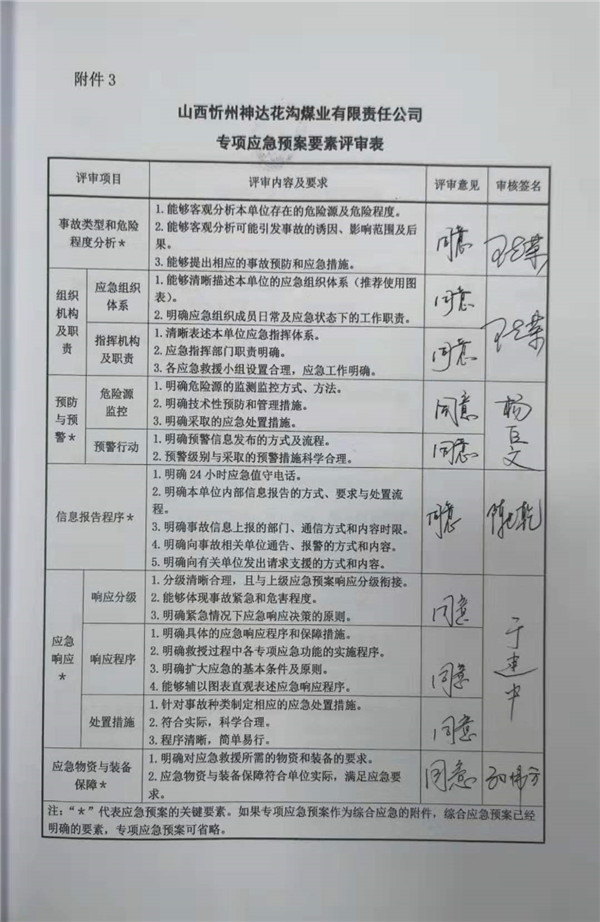 附件 3
山西忻州神达花沟煤业有限责任公司
专项应急预案要素评审表
评审项目 评审内容及要求 评审意见 审核签名
事故类型和危险
程度分析*
1. 能够客观分析本单位存在的危险源及危险程度。
2. 能够客观分析可能引发事故的诱因、影响范围及后
果。
3. 能够提出相应的事故预防和应急措施。
同意
组织
机构
及职
责
应急组织
体系
1. 能够清晰描述本单位的应急组织体系（推荐使用图
表）。
2. 明确应急组织成员日常及应急状态下的工作职责。
同意
指挥机构
及职责
1. 清晰表述本单位应急指挥体系。
2. 应急指挥部门职责明确。
3. 各应急救援小组设置合理，应急工作明确。
同意
预防
与预
警*
危险源
监控
1. 明确危险源的监测监控方式、方法。
2. 明确技术性预防和管理措施。
3. 明确采取的应急处置措施。
同意
杨
巨
文
预警行动
1. 明确预警信息发布的方式及流程。
2. 预警级别与采取的预警措施科学合理。
同意
信息报告程序*
1. 明确 24 小时应急值守电话。
2. 明确本单位内部信息报告的方式、要求与处置流
程。
3. 明确事故信息上报的部门、通信方式和内容时限。
4. 明确向事故相关单位通告、报警的方式和内容。
5. 明确向有关单位发出请求支援的方式和内容。
同意
应急
响应
*
响应分级
1. 分级清晰合理，且与上级应急预案响应分级衔接。
2. 能够体现事故紧急和危害程度。
3. 明确紧急情况下应急响应决策的原则。
同意
于
建
中
响应程序
1. 明确具体的应急响应程序和保障措施。
2. 明确救援过程中各专项应急功能的实施程序。
3. 明确扩大应急的基本条件及原则。
4. 能够辅以图表直观表述应急响应程序。
同意
处置措施
1. 针对事故种类制定相应的应急处置措施。
2. 符合实际，科学合理。
3. 程序清晰，简单易行。
同意
应急物资与装备
保障*
1. 明确对应急救援所需的物资和装备的要求。
2. 应急物资与装备保障符合单位实际，满足应急要
求。
同意
注：“*”代表应急预案的关键要素。如果专项应急预案作为综合应急的附件，综合应急预案已经
明确的要素，专项应急预案可省略。